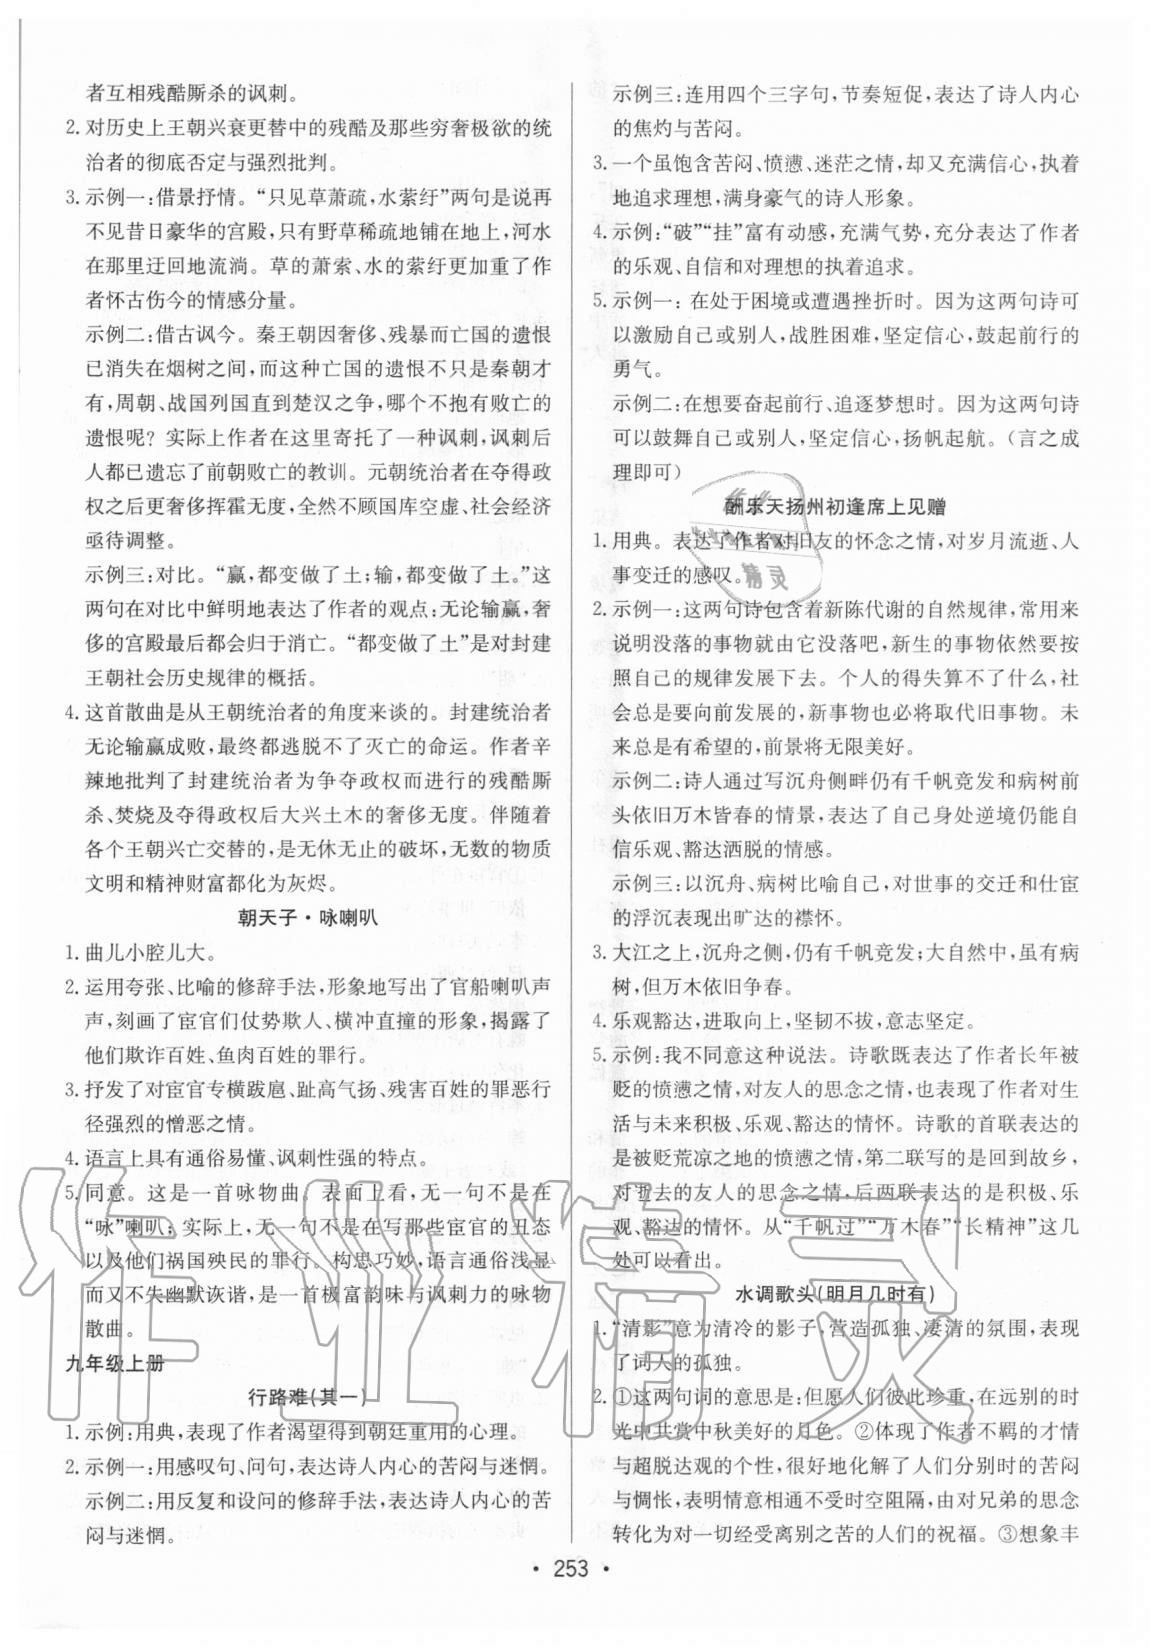 者互相残酷厮杀的讽刺。
2. 对历史上王朝兴衰更替中的残酷及那些穷奢极欲的统
治者的彻底否定与强烈批判。
3. 示例一:借景抒情。“只见草萧疏,水萦纡”两句是说再
不见昔日豪华的宫殿,只有野草稀疏地铺在地上,河水
在那里迂回地流淌。草的萧索、水的萦纡更加重了作
者怀古伤今的情感分量。
示例二:借古讽今。秦王朝因奢侈、残暴而亡国的遗恨
已消失在烟树之间,而这种亡国的遗恨不只是秦朝才
有,周朝、战国列国直到楚汉之争,哪个不抱有败亡的
遗恨呢？实际上作者在这里寄托了一种讽刺,讽刺后
人都已遗忘了前朝败亡的教训。元朝统治者在夺得政
权之后更奢侈挥霍无度,全然不顾国库空虚、社会经济
亟待调整。
示例三:对比。“赢,都变做了土;输,都变做了土。”这
两句在对比中鲜明地表达了作者的观点:无论输赢,奢
侈的宫殿最后都会归于消亡。“都变做了土”是对封建
王朝社会历史规律的概括。
4. 这首散曲是从王朝统治者的角度来谈的。封建统治者
无论输赢成败,最终都逃脱不了灭亡的命运。作者辛
辣地批判了封建统治者为争夺政权而进行的残酷厮
杀、焚烧及夺得政权后大兴土木的奢侈无度。伴随着
各个王朝兴亡交替的,是无休无止的破坏,无数的物质
文明和精神财富都化为灰烬。
朝天子·咏喇叭
1. 曲儿小腔儿大。
2. 运用夸张、比喻的修辞手法,形象地写出了官船喇叭声
声,刻画了宦官们仗势欺人、横冲直撞的形象,揭露了
他们欺诈百姓、鱼肉百姓的罪行。
3. 抒发了对宦官专横跋扈、趾高气扬、残害百姓的罪恶行
径强烈的憎恶之情。
4. 语言上具有通俗易懂、讽刺性强的特点。
5. 同意。这是一首咏物曲。表面上看,无一句不是在
“咏”喇叭;实际上,无一句不是在写那些宦官的丑态
以及他们祸国殃民的罪行。构思巧妙,语言通俗浅显
而又不失幽默诙谐,是一首极富韵味与讽刺力的咏物
散曲。
九年级上册
行路难(其一)
1. 示例:用典,表现了作者渴望得到朝廷重用的心理。
2. 示例一:用感叹句、问句,表达诗人内心的苦闷与迷惘。
示例二:用反复和设问的修辞手法,表达诗人内心的苦
闷与迷惘。
示例三:连用四个三字句,节奏短促,表达了诗人内心
的焦灼与苦闷。
3. 一个虽饱含苦闷、愤懑、迷茫之情,却又充满信心,执着
地追求理想,满身豪气的诗人形象。
4. 示例:“破”“挂”富有动感,充满气势,充分表达了作者
的乐观、自信和对理想的执着追求。
5. 示例一: 在处于困境或遭遇挫折时。因为这两句诗可
以激励自己或别人,战胜困难,坚定信心,鼓起前行的
勇气。
示例二:在想要奋起前行、追逐梦想时。因为这两句诗
可以鼓舞自己或别人,坚定信心,扬帆起航。(言之成
理即可)
酬乐天扬州初逢席上见赠
1. 用典。表达了作者对旧友的怀念之情,对岁月流逝、人
事变迁的感叹。
2. 示例一:这两句诗包含着新陈代谢的自然规律,常用来
说明没落的事物就由它没落吧,新生的事物依然要按
照自己的规律发展下去。个人的得失算不了什么,社
会总是要向前发展的,新事物也必将取代旧事物。未
来总是有希望的,前景将无限美好。
示例二:诗人通过写沉舟侧畔仍有千帆竞发和病树前
头依旧万木皆春的情景,表达了自己身处逆境仍能自
信乐观、豁达洒脱的情感。
示例三:以沉舟、病树比喻自己,对世事的变迁和仕宦
的浮沉表现出旷达的襟怀。
3. 大江之上,沉舟之侧,仍有千帆竞发;大自然中,虽有病
树,但万木依旧争春。
4. 乐观豁达,进取向上,坚韧不拔,意志坚定。
5. 示例:我不同意这种说法。诗歌既表达了作者长年被
贬的愤懑之情,对友人的思念之情,也表达了作者对生
活与未来积极、乐观、豁达的情怀。诗歌的首联表达的
是被贬荒凉之地的愤懑之情,第二联写的是回到故乡,
对逝去的友人的思念之情,后两联表达的是积极、乐
观、豁达的情怀。从“千帆过”“万木春”“长精神”这几
处可以看出。
水调歌头(明月几时有)
1. “清影”意为清冷的影子,营造孤独、凄清的氛围,表现
了词人的孤独。
2. ①这两句词的意思是:但愿人们彼此珍重,在远别的时
光中共赏中秋美好的月色。②体现了作者不羁的才情
与超脱达观的个性,很好地化解了人们分别时的苦闷
与惆怅,表明情意相通不受时空阻隔,由对兄弟的思念
转化为对一切经受离别之苦的人们的祝福。③想象丰
· 253 ·
作业精灵